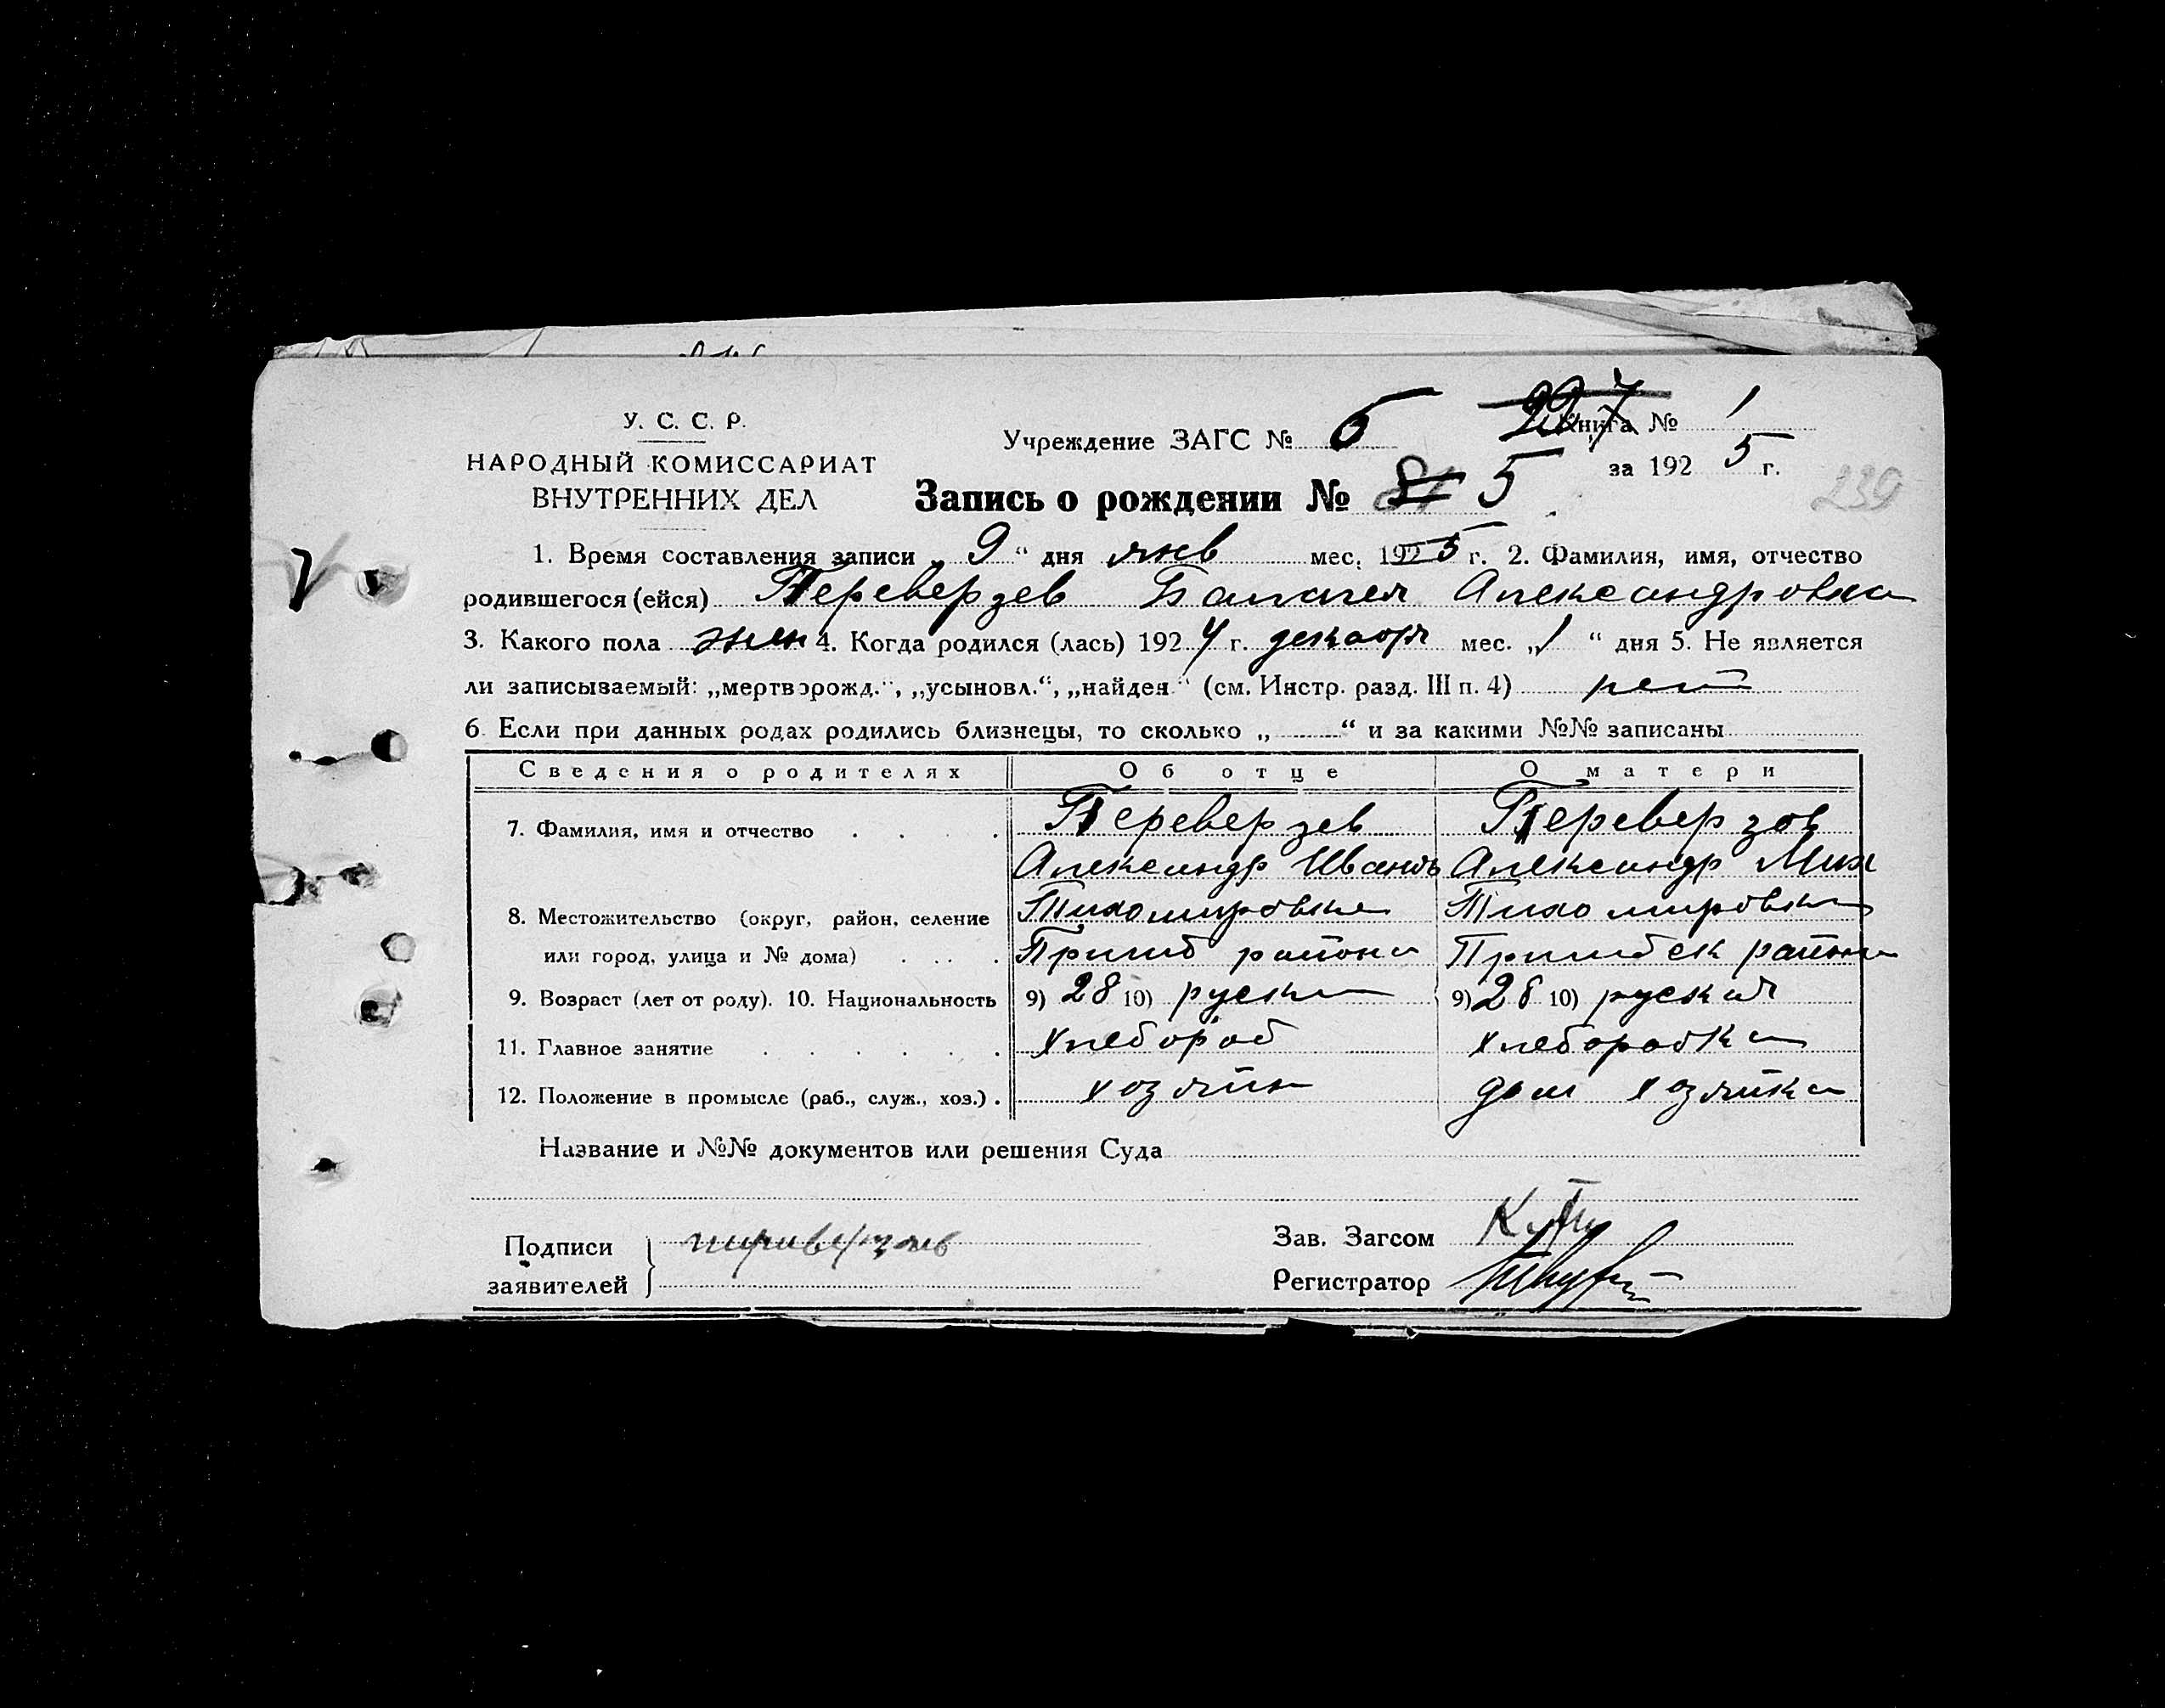 У. С. С. Р.
НАРОДНЫЙ КОМИССАРИАТ
ВНУТРЕННИХ ДЕЛ
Учреждение ЗАГС № 6
227 Книга № 1
за 1925 г.
Запись о рождении № 5
239
1. Время составления записи „ 9 “ дня янв мес. 1925 г. 2. Фамилия, имя, отчество
родившегося (ейся) Переверзев Александровна
3. Какого пола жен 4. Когда родился (лась) 1924 г. декабря мес. „ 1 “ дня 5. Не является
ли записываемый: „мертворожд.“, „усыновл.“, „найден.“ (см. Инстр. разд. III п. 4) нет
6. Если при данных родах родились близнецы, то сколько „ “ и за какими №№ записаны
Сведения о родителях Об отце О матери
7. Фамилия, имя и отчество Переверзев Переверзов
Александр Иванов Александр Мих
8. Местожительство (округ, район, селение Тихомировка Тихомировка
или город, улица и № дома) Пришиб района Пришибск района
9. Возраст (лет от роду). 10. Национальность 9) 28 10) руски 9) 28 10) руская
11. Главное занятие хлебороб хлеборобка
12. Положение в промысле (раб., служ., хоз.) хозяин дом хозяйка
Название и №№ документов или решения Суда
Подписи
заявителей
Зав. Загсом
Регистратор